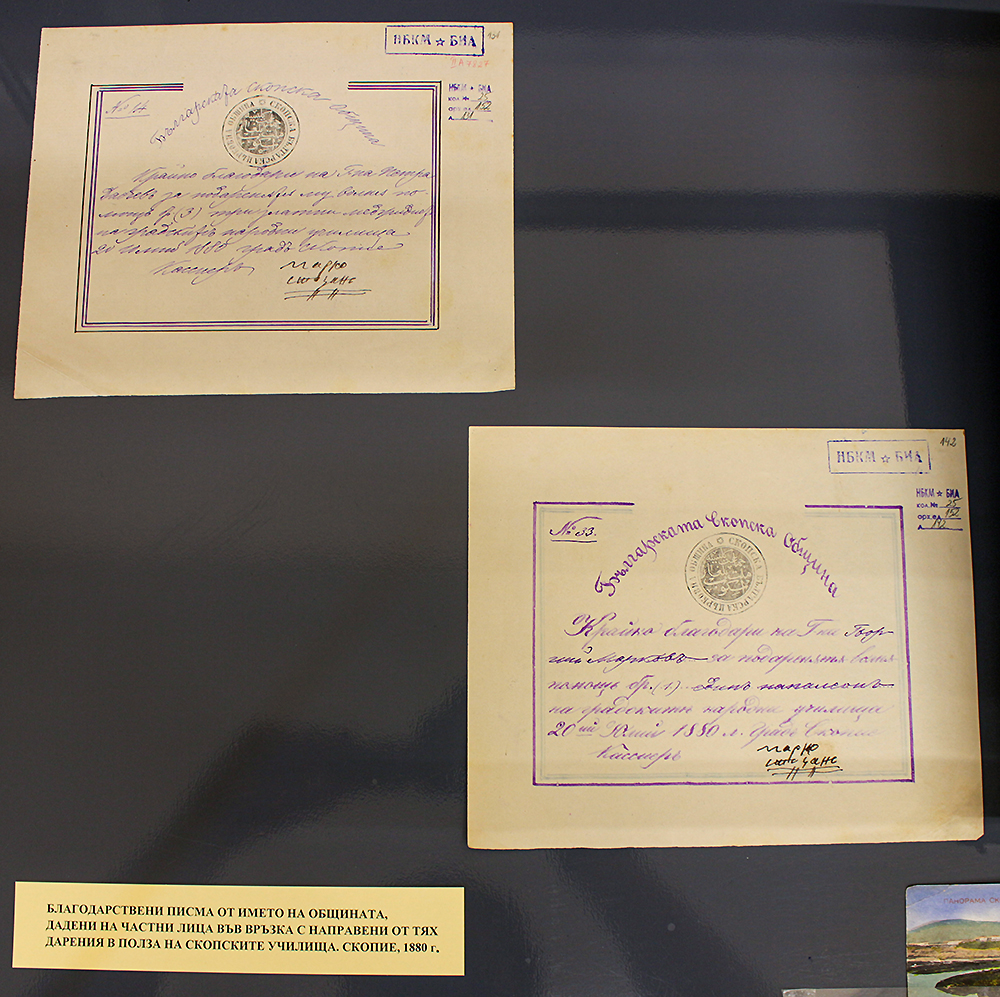 НБКМ ☆ БИА
151
НБКМ ☆ БИА
кол. № 25
арх. ед. 152
л. 151
№ 14
Българската Скопска Община
СКОПСКА БЪЛГАРСКА ЦЪРКОВНА ОБЩИНА
Крайно благодари на Гна
за подаренятѫ му волна по-
мощь бр (3) три златни
на градскитѣ народни училища
20 Юлий 1880 градъ Скопие
Кассиеръ
НБКМ ☆ БИА
142
НБКМ ☆ БИА
кол. № 25
арх. ед. 152
л. 142
№ 33.
Българската Скопска Община
СКОПСКА БЪЛГАРСКА ЦЪРКОВНА ОБЩИНА
Крайно благодари на Гна Геор-
гий Марковъ за подаренятѫ волна
помощь бр. (1) Единъ наполеонъ
на градскитѣ народни училища
20 ий Юлий 1880 л. градъ Скопие
Кассиеръ
БЛАГОДАРСТВЕНИ ПИСМА ОТ ИМЕТО НА ОБЩИНАТА,
ДАДЕНИ НА ЧАСТНИ ЛИЦА ВЪВ ВРЪЗКА С НАПРАВЕНИ ОТ ТЯХ
ДАРЕНИЯ В ПОЛЗА НА СКОПСКИТЕ УЧИЛИЩА. СКОПИЕ, 1880 г.
ПАНОРАМА